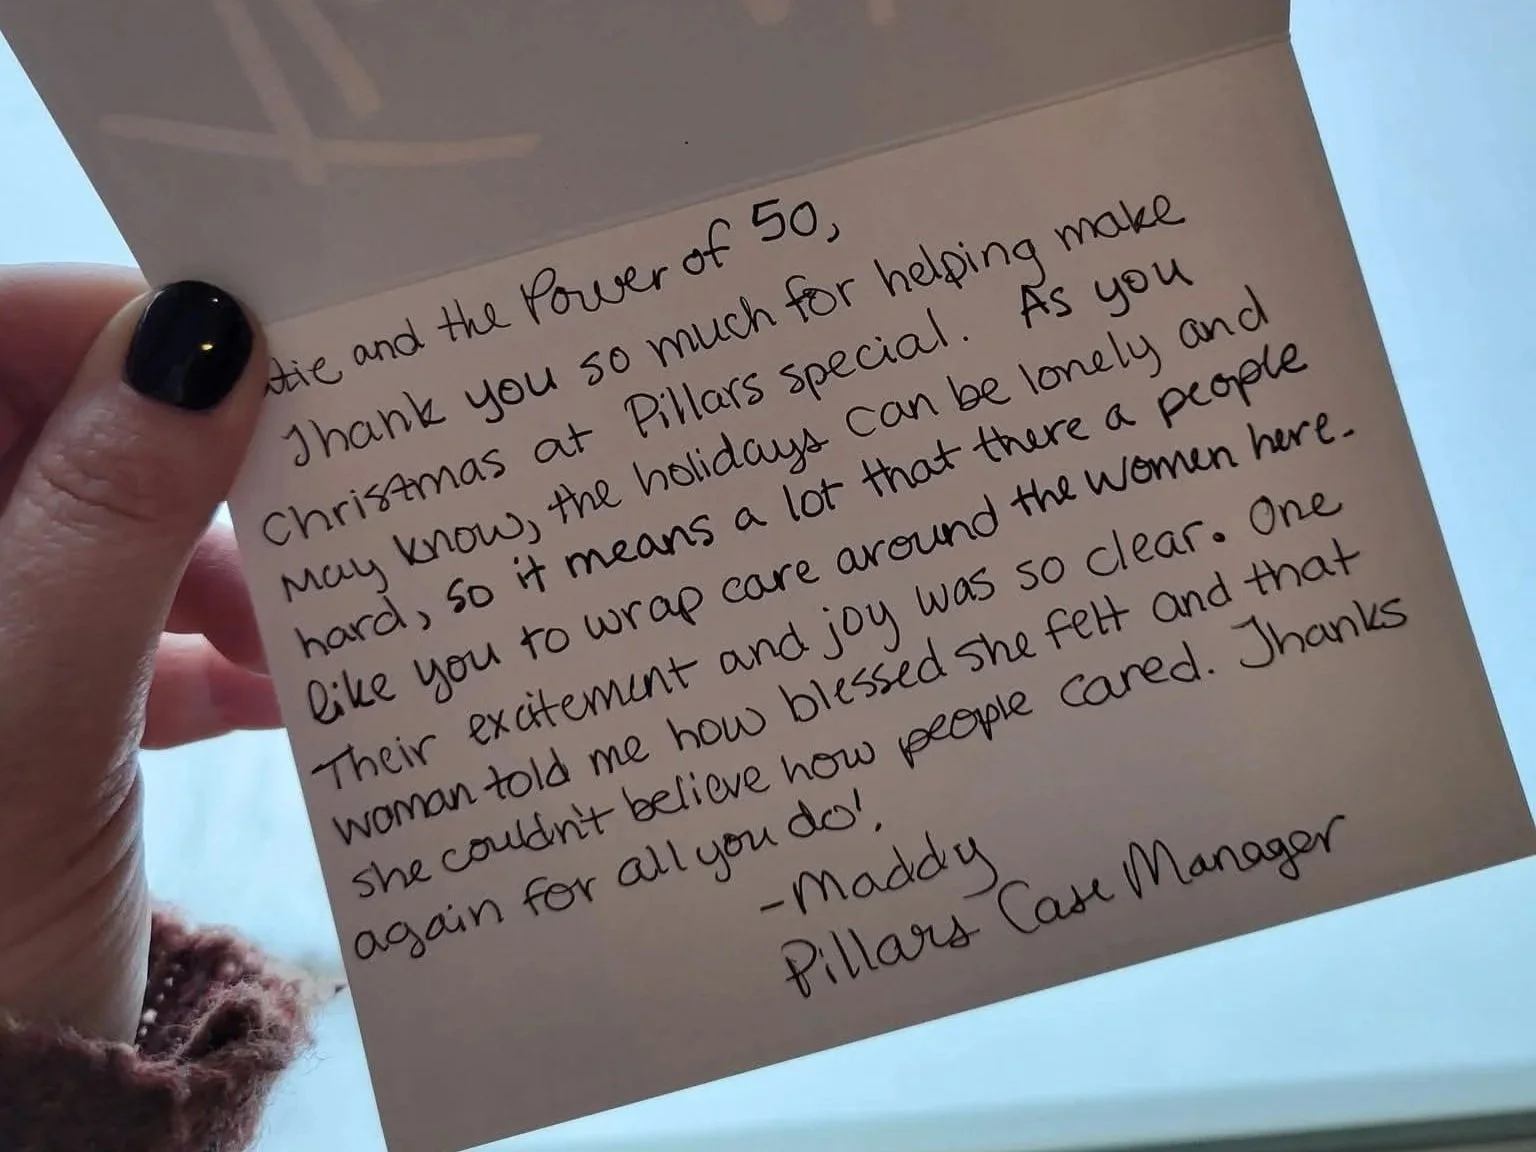 tie and the Power of 50,
Thank you so much for helping make
Christmas at Pillars special. As you
may know, the holidays can be lonely and
hard, so it means a lot that there a people
like you to wrap care around the women here.
Their excitement and joy was so clear. One
woman told me how blessed she felt and that
she couldn't believe how people cared. Thanks
again for all you do!
-Maddy
Pillars Case Manager